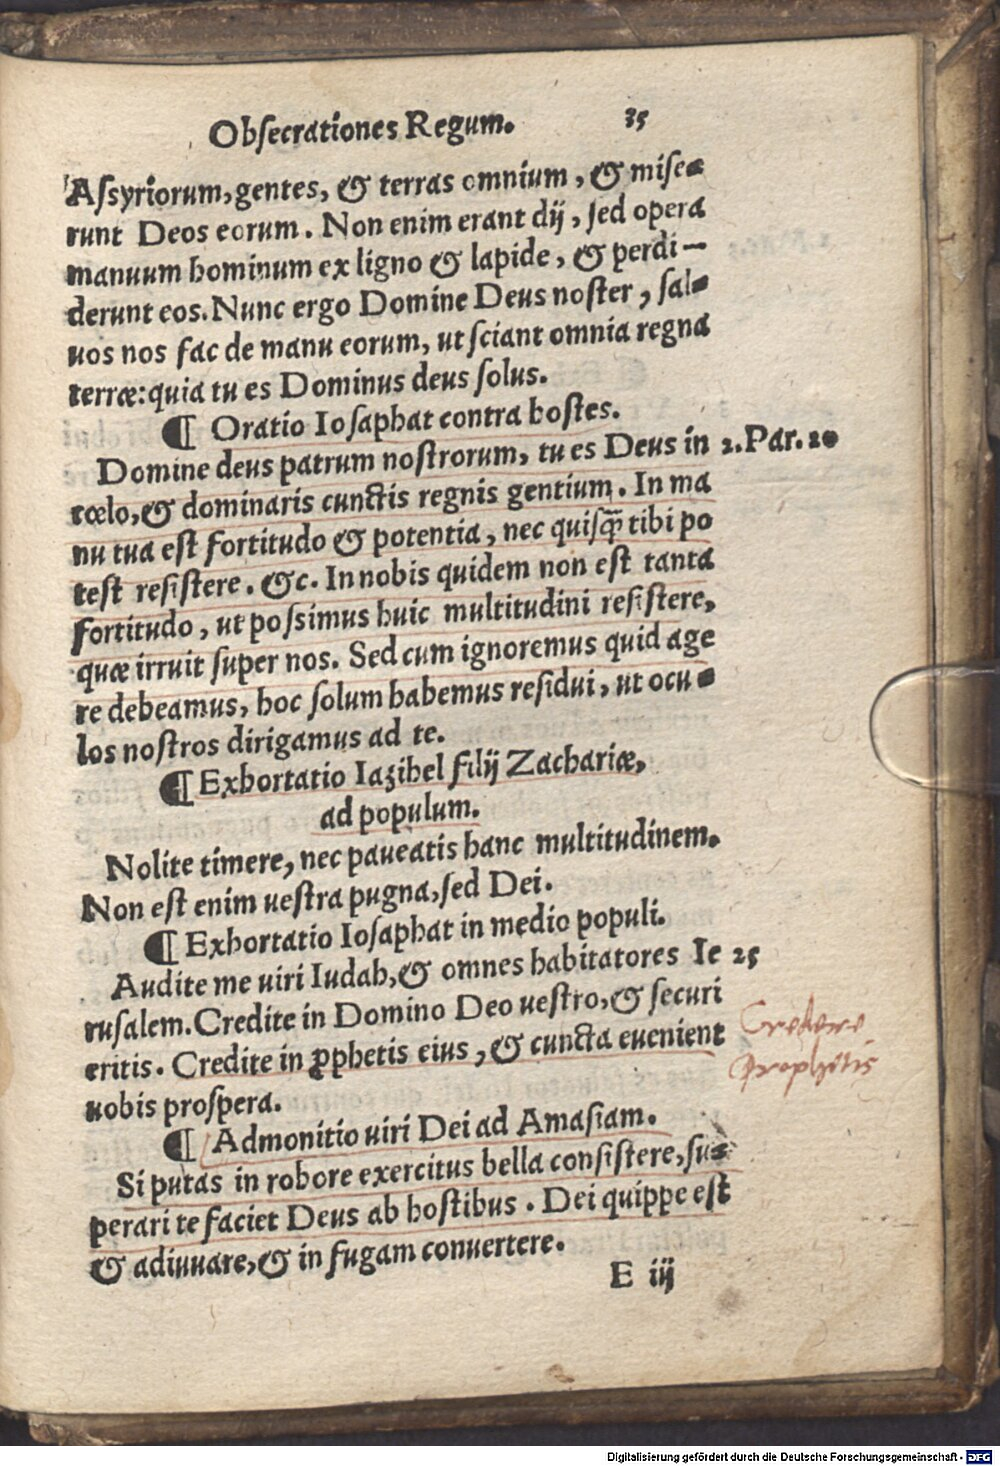 Obsecrationes Regum. 35
Assyriorum, gentes, & terras omnium, & mise-
runt Deos eorum. Non enim erant dij, sed opera
manuum hominum ex ligno & lapide, & perdi-
derunt eos. Nunc ergo Domine Deus noster, sal-
uos nos fac de manu eorum, ut sciant omnia regna
terræ: quia tu es Dominus deus solus.
¶ Oratio Iosaphat contra hostes.
Domine deus patrum nostrorum, tu es Deus in 2. Par. 20
cœlo, & dominaris cunctis regnis gentium. In ma
nu tua est fortitudo & potentia, nec quisq̃ tibi po
test resistere. &c. In nobis quidem non est tanta
fortitudo, ut possimus huic multitudini resistere,
quæ irruit super nos. Sed cum ignoremus quid age
re debeamus, hoc solum habemus residui, ut ocu-
los nostros dirigamus ad te.
¶ Exhortatio Iazihel filij Zachariæ,
ad populum.
Nolite timere, nec paueatis hanc multitudinem.
Non est enim uestra pugna, sed Dei.
¶ Exhortatio Iosaphat in medio populi.
Audite me uiri Iudah, & omnes habitatores Ie 25
rusalem. Credite in Domino Deo uestro, & securi
eritis. Credite in ꝓphetis eius, & cuncta euenient
uobis prospera.
Credere
Prophetis
¶ Admonitio uiri Dei ad Amasiam.
Si putas in robore exercitus bella consistere, su-
perari te faciet Deus ab hostibus. Dei quippe est
& adiuuare, & in fugam conuertere.
E iij
Digitalisierung gefördert durch die Deutsche Forschungsgemeinschaft - DFG